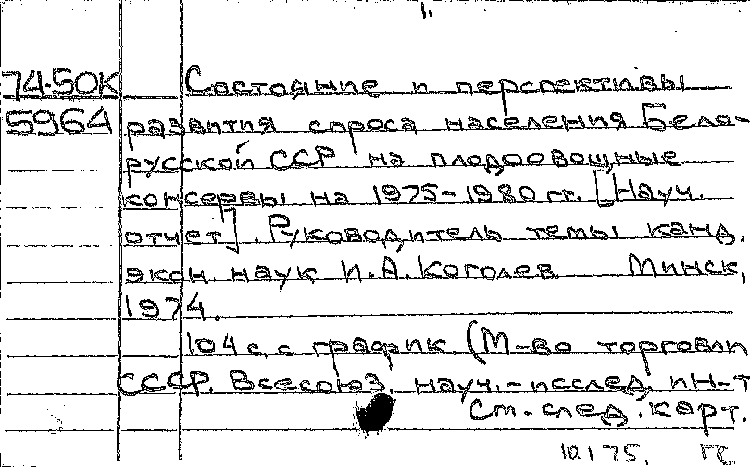 1.
74-50К Состояние и перспективы
5964 развития спроса населения Бело-
русской ССР на плодоовощные
консервы на 1975-1980 гг. [Науч.
отчет]. Руководитель темы канд.
экон. наук И.А. Коголев Минск,
1974.
104 с. с график. (М-во торговли
СССР. Всесоюз. науч.-исслед. ин-т
См. след. карт.
10.1.75.